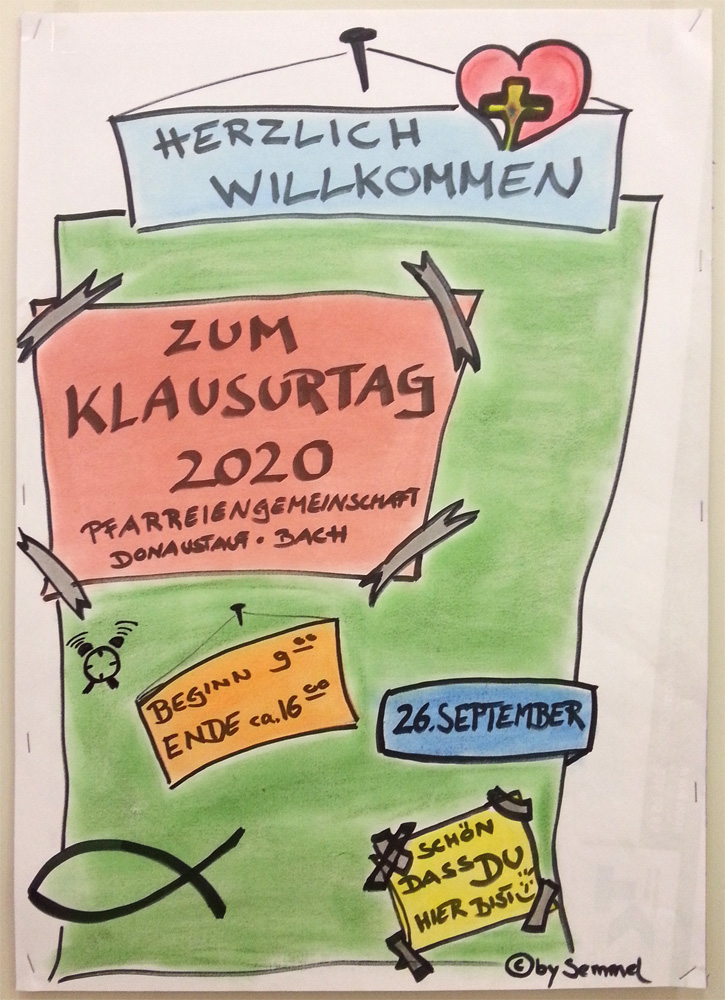 HERZLICH
WILLKOMMEN
ZUM
KLAUSURTAG
2020
PFARREIENGEMEINSCHAFT
DONAUSTAUF • BACH
BEGINN 9⁰⁰
ENDE ca. 16⁰⁰
26. SEPTEMBER
SCHÖN
DASS DU
HIER BIST
© by Semmel